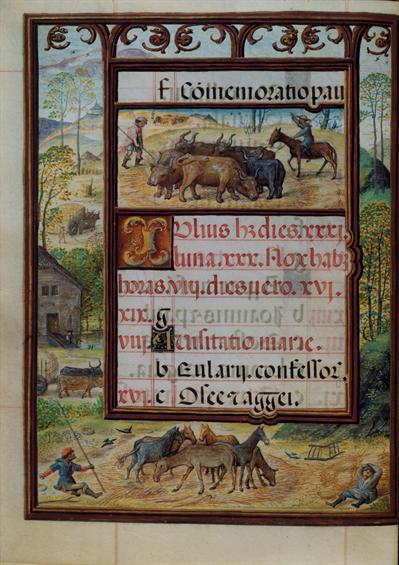 f Cōmemoratio pau
Iulius hz dies. xxxi.
luna. xxx. Nox habz
horas. viij. dies uero. xvi.
xix. g
viij A visitatio marie.
b Eulary. confessor.
xvi. c Osee z aggei.